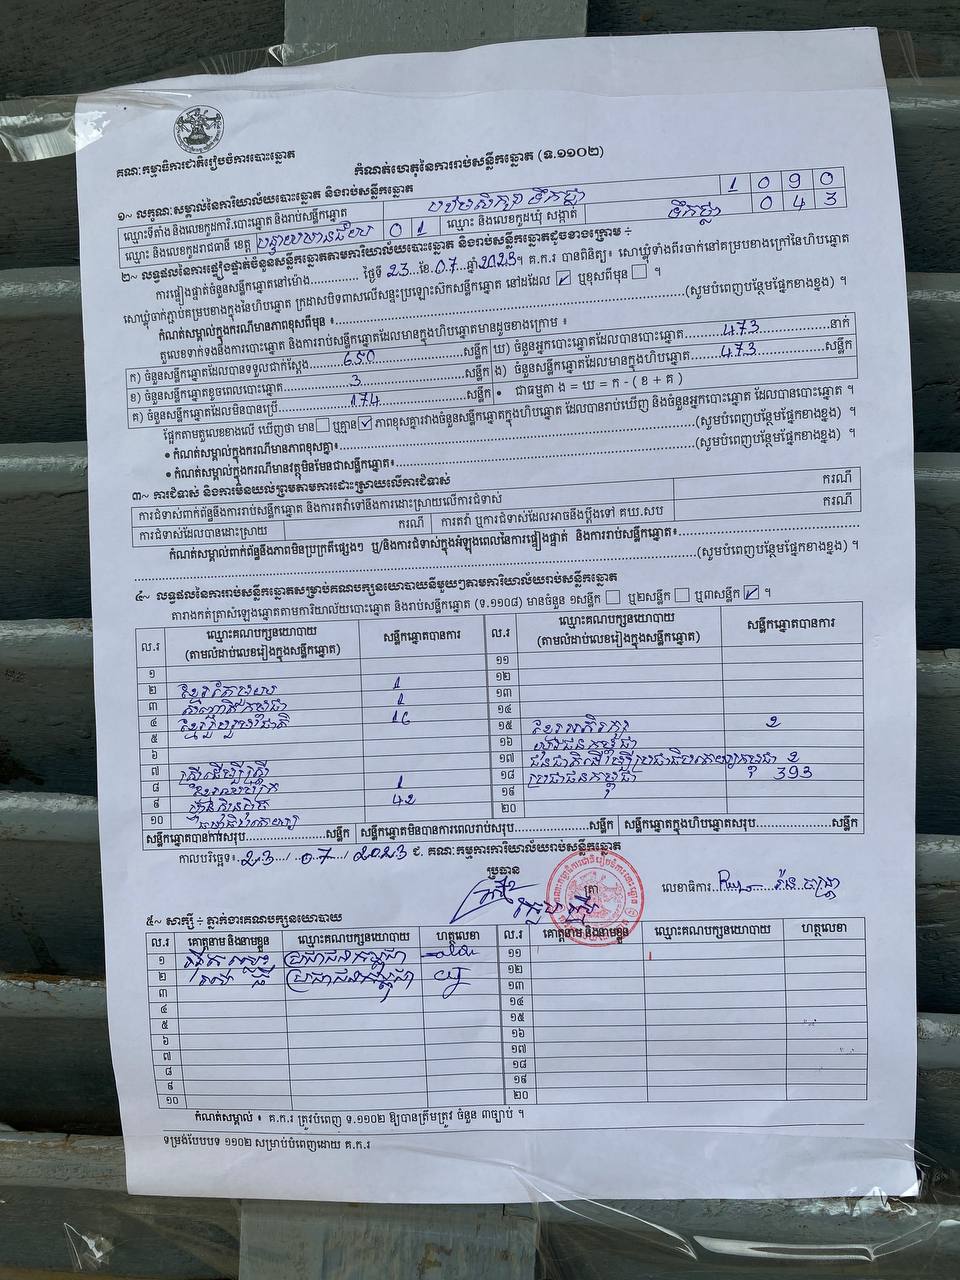 គណៈកម្មាធិការជាតិរៀបចំការបោះឆ្នោត
កំណត់ហេតុនៃការរាប់សន្លឹកឆ្នោត (ទ.១១០២)
១~ លក្ខណៈសម្គាល់នៃការិយាល័យបោះឆ្នោត និងរាប់សន្លឹកឆ្នោត
ឈ្មោះទីតាំង និងលេខកូដការិ.បោះឆ្នោត និងរាប់សន្លឹកឆ្នោត បឋមសិក្សា ទឹកថ្លា 1 0 9 0
ឈ្មោះ និងលេខកូដរាជធានី ខេត្ត បន្ទាយមានជ័យ 0 1 ឈ្មោះ និងលេខកូដឃុំ សង្កាត់ ទឹកថ្លា 0 4 3
២~ លទ្ធផលនៃការផ្ទៀងផ្ទាត់ចំនួនសន្លឹកឆ្នោតតាមការិយាល័យបោះឆ្នោត និងរាប់សន្លឹកឆ្នោតដូចខាងក្រោម ៖
ការផ្ទៀងផ្ទាត់ចំនួនសន្លឹកឆ្នោតនៅម៉ោង.............. ថ្ងៃទី 23 ខែ 07 ឆ្នាំ 2023។ គ.ក.រ បានពិនិត្យ៖ សោឃ្លុំទាំងពីរចាក់នៅគម្របខាងក្រៅនៃហិបឆ្នោត
សោឃ្លុំចាក់ភ្ជាប់គម្របខាងក្នុងនៃហិបឆ្នោត ក្រដាសបិទពាសលើសន្ទះប្រឡោះសិកសន្លឹកឆ្នោត នៅដដែល ☑ ឬខុសពីមុន ☐ ។
កំណត់សម្គាល់ក្នុងករណីមានភាពខុសពីមុន ៖..............(សូមបំពេញបន្ថែមផ្នែកខាងខ្នង) ។
តួលេខទាក់ទងនឹងការបោះឆ្នោត និងការរាប់សន្លឹកឆ្នោតដែលមានក្នុងហិបឆ្នោតមានដូចខាងក្រោម ៖
ក) ចំនួនសន្លឹកឆ្នោតដែលបានទទួលជាក់ស្តែង 650 សន្លឹក ឃ) ចំនួនអ្នកបោះឆ្នោតដែលបានបោះឆ្នោត 473 នាក់
ខ) ចំនួនសន្លឹកឆ្នោតខូចពេលបោះឆ្នោត 3 សន្លឹក ង) ចំនួនសន្លឹកឆ្នោតដែលមានក្នុងហិបឆ្នោត 473 សន្លឹក
គ) ចំនួនសន្លឹកឆ្នោតដែលមិនបានប្រើ 174 សន្លឹក • ជាធម្មតា ង = ឃ = ក - ( ខ + គ )
ផ្អែកតាមតួលេខខាងលើ ឃើញថា មាន ☐ ឬគ្មាន ☑ ភាពខុសគ្នារវាងចំនួនសន្លឹកឆ្នោតក្នុងហិបឆ្នោត ដែលបានរាប់ឃើញ និងចំនួនអ្នកបោះឆ្នោត ដែលបានបោះឆ្នោត ។
• កំណត់សម្គាល់ក្នុងករណីមានភាពខុសគ្នា៖..............(សូមបំពេញបន្ថែមផ្នែកខាងខ្នង) ។
• កំណត់សម្គាល់ក្នុងករណីមានវត្ថុមិនមែនជាសន្លឹកឆ្នោត៖..............(សូមបំពេញបន្ថែមផ្នែកខាងខ្នង) ។
៣~ ការជំទាស់ និងការមិនយល់ព្រមតាមការដោះស្រាយលើការជំទាស់
ការជំទាស់ពាក់ព័ន្ធនឹងការរាប់សន្លឹកឆ្នោត និងការតវ៉ាទៅនឹងការដោះស្រាយលើការជំទាស់ ករណី
ការជំទាស់ដែលបានដោះស្រាយ ករណី ការតវ៉ា ឬការជំទាស់ដែលអាចនឹងប្តឹងទៅ គឃ.សប ករណី
កំណត់សម្គាល់ពាក់ព័ន្ធនឹងភាពមិនប្រក្រតីផ្សេងៗ ឬ/និងការជំទាស់ក្នុងអំឡុងពេលនៃការផ្ទៀងផ្ទាត់ និងការរាប់សន្លឹកឆ្នោត៖..............
..............(សូមបំពេញបន្ថែមផ្នែកខាងខ្នង) ។
៤~ លទ្ធផលនៃការរាប់សន្លឹកឆ្នោតសម្រាប់គណបក្សនយោបាយនីមួយៗតាមការិយាល័យរាប់សន្លឹកឆ្នោត
តារាងកត់ត្រាសំឡេងឆ្នោតតាមការិយាល័យបោះឆ្នោត និងរាប់សន្លឹកឆ្នោត (ទ.១១០៨) មានចំនួន ១សន្លឹក ☐ ឬ២សន្លឹក ☐ ឬ៣សន្លឹក ☑ ។
ល.រ ឈ្មោះគណបក្សនយោបាយ (តាមលំដាប់លេខរៀងក្នុងសន្លឹកឆ្នោត) សន្លឹកឆ្នោតបានការ ល.រ ឈ្មោះគណបក្សនយោបាយ (តាមលំដាប់លេខរៀងក្នុងសន្លឹកឆ្នោត) សន្លឹកឆ្នោតបានការ
១ ១១
២ 1 ១២
៣ 1 ១៣
៤ ខ្មែររួបរួមជាតិ 16 ១៤
៥ ១៥ 2
៦ ១៦
៧ ស្រ្តីដើម្បីស្រ្តី ១៧ ជនជាតិដើមប្រជាធិបតេយ្យកម្ពុជា 2
៨ 1 ១៨ ប្រជាជនកម្ពុជា 393
៩ ហ្វ៊ុនស៊ិនប៉ិច 42 ១៩
១០ ២០
សន្លឹកឆ្នោតបានការសរុប..............សន្លឹក សន្លឹកឆ្នោតមិនបានការពេលរាប់សរុប..............សន្លឹក សន្លឹកឆ្នោតក្នុងហិបឆ្នោតសរុប..............សន្លឹក
កាលបរិច្ឆេទ៖ 23 / 07 / 2023 ជ. គណៈកម្មការការិយាល័យរាប់សន្លឹកឆ្នោត
ប្រធាន
ត្រា លេខាធិការ
៥~ សាក្សី ៖ ភ្នាក់ងារគណបក្សនយោបាយ
ល.រ គោត្តនាម និងនាមខ្លួន ឈ្មោះគណបក្សនយោបាយ ហត្ថលេខា ល.រ គោត្តនាម និងនាមខ្លួន ឈ្មោះគណបក្សនយោបាយ ហត្ថលេខា
១ ប្រជាជនកម្ពុជា ១១
២ ប្រជាជនកម្ពុជា ១២
៣ ១៣
៤ ១៤
៥ ១៥
៦ ១៦
៧ ១៧
៨ ១៨
៩ ១៩
១០ ២០
កំណត់សម្គាល់ ៖ គ.ក.រ ត្រូវបំពេញ ទ.១១០២ ឱ្យបានត្រឹមត្រូវ ចំនួន ៣ច្បាប់ ។
ទម្រង់បែបបទ ១១០២ សម្រាប់បំពេញដោយ គ.ក.រ